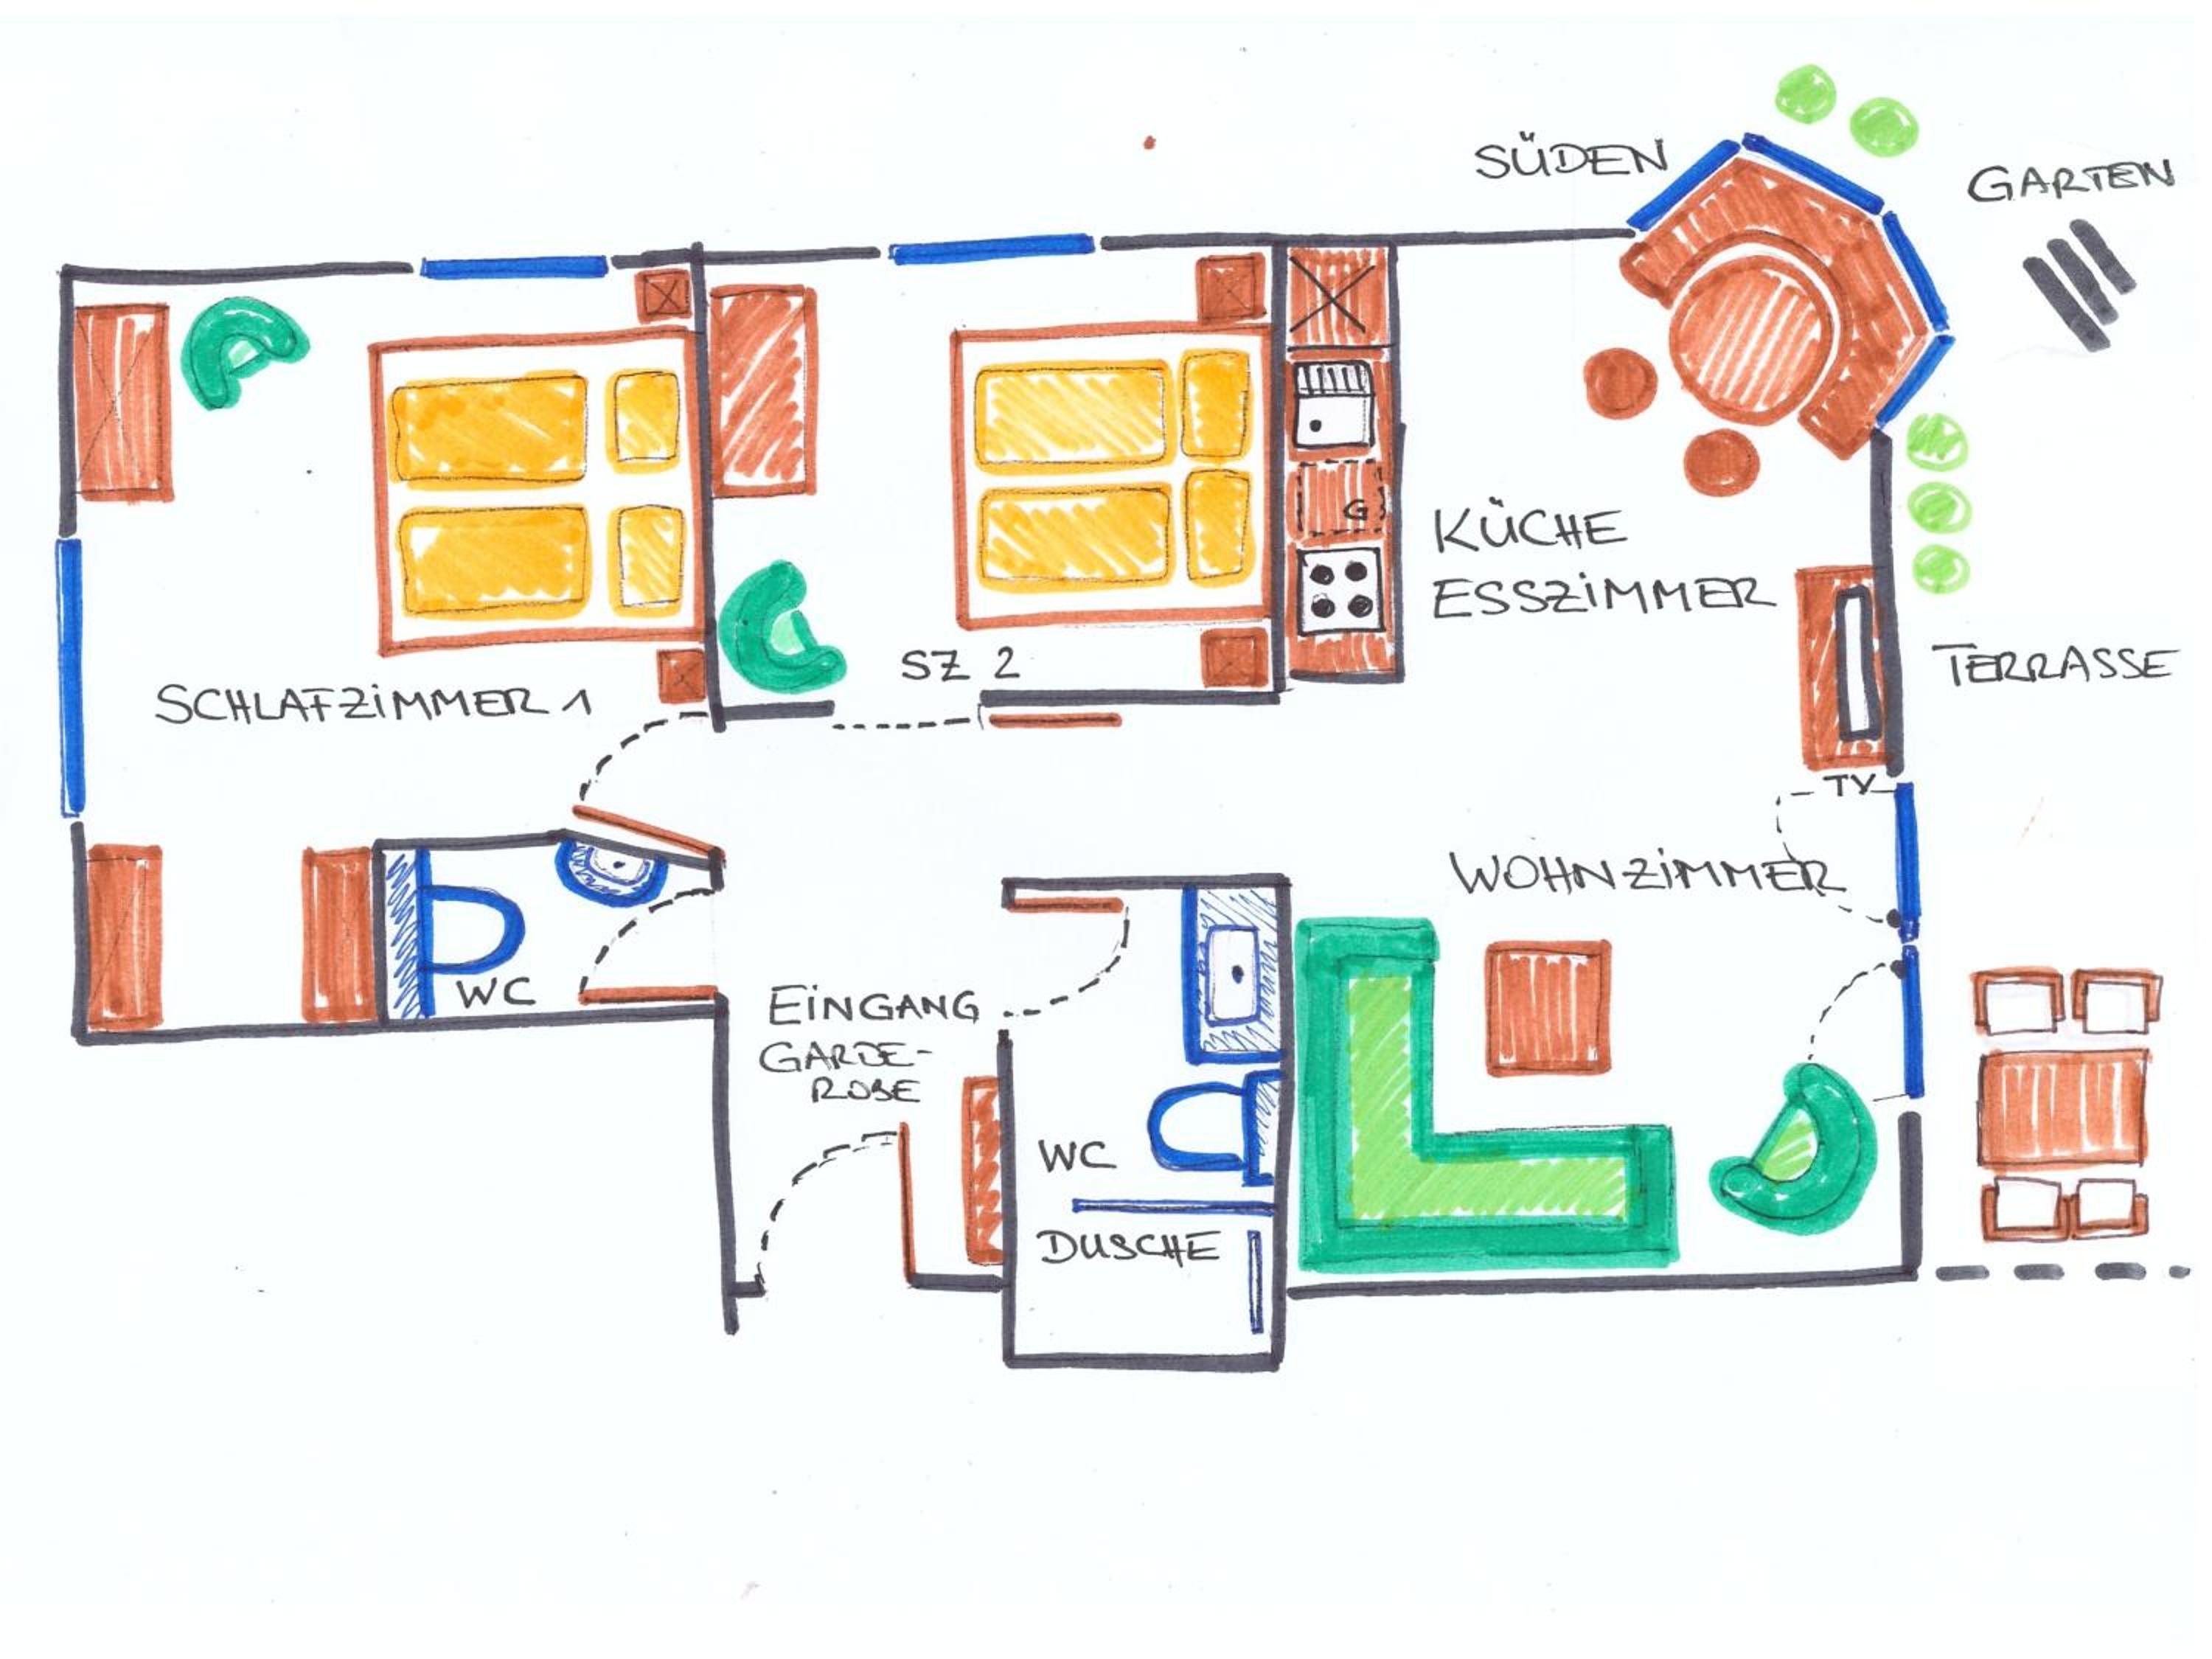 SÜDEN
GARTEN
G
KÜCHE
ESSZiMMER
TERRASSE
SZ 2
SCHLAFZiMMER 1
TV
WOHNZiMMER
WC
EiNGANG
GARDE-
ROBE
WC
DUSCHE